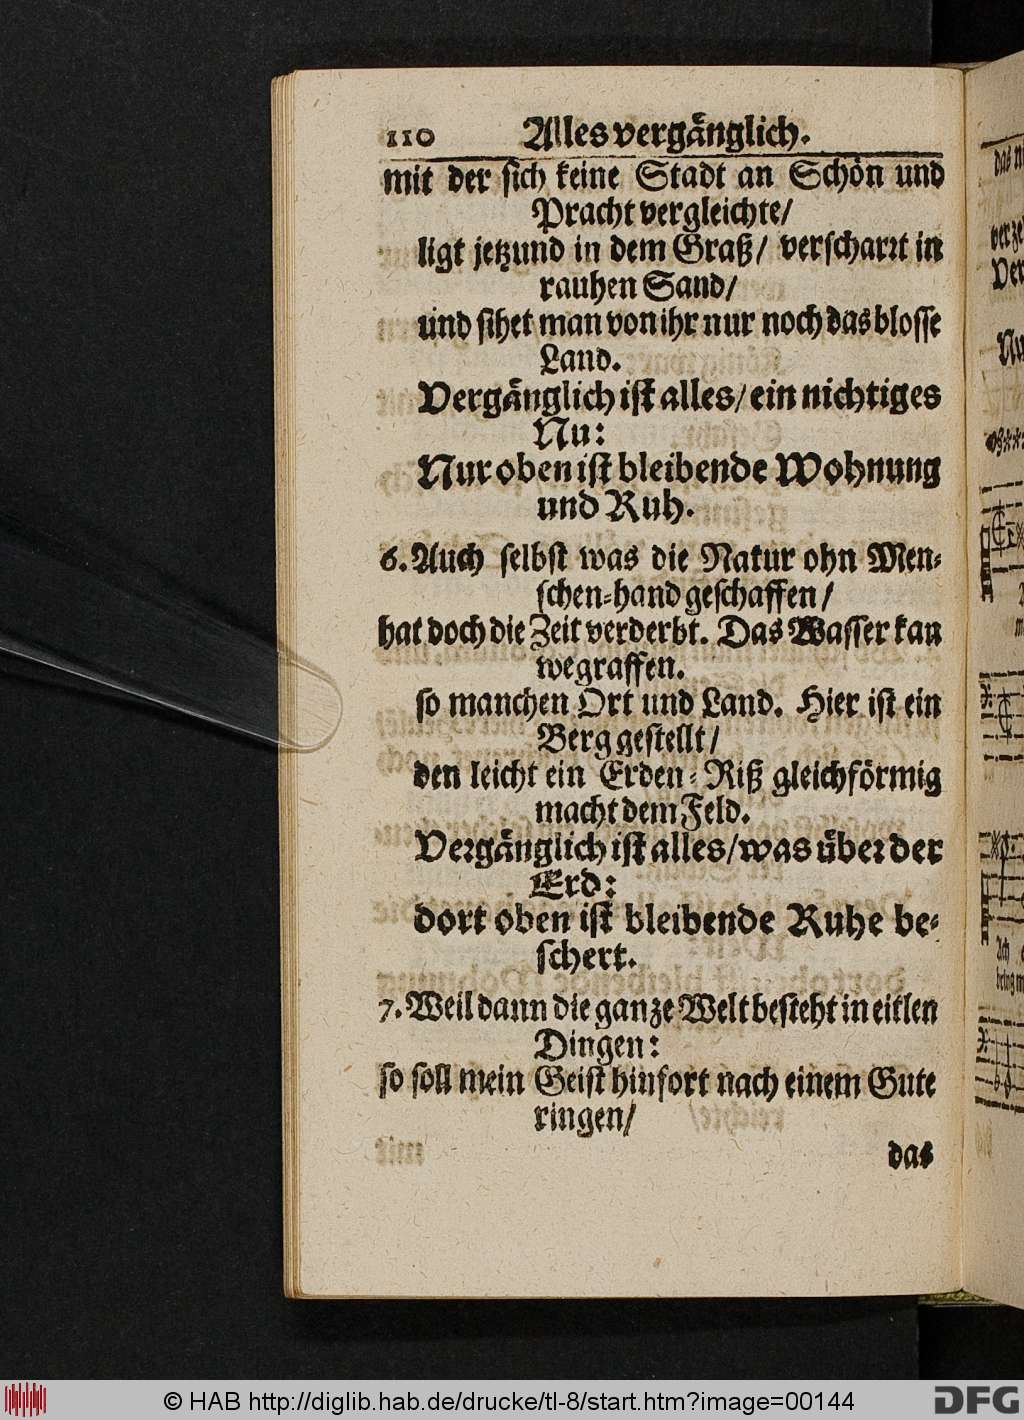 110 Alles vergänglich.
mit der sich keine Stadt an Schön und
Pracht vergleichte/
ligt jetzund in dem Graß/ verscharrt in
rauhen Sand/
und sihet man von ihr nur noch das blosse
Land.
Vergänglich ist alles/ ein nichtiges
Nu:
Nur oben ist bleibende Wohnung
und Ruh.
6. Auch selbst was die Natur ohn Men-
schen-hand geschaffen/
hat doch die Zeit verderbt. Das Wasser kan
wegraffen.
so manchen Ort und Land. Hier ist ein
Berg gestellt/
den leicht ein Erden-Riß gleichförmig
macht dem Feld.
Vergänglich ist alles/ was über der
Erd:
dort oben ist bleibende Ruhe be-
schert.
7. Weil dann die ganze Welt besteht in eitlen
Dingen:
so soll mein Geist hinfort nach einem Gute
ringen/
das
© HAB http://diglib.hab.de/drucke/tl-8/start.htm?image=00144
DFG